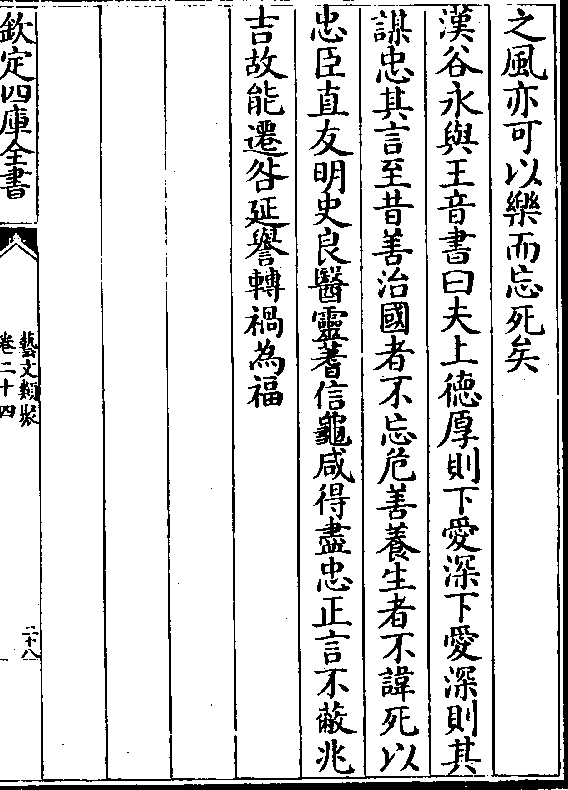 之風亦可以樂而忘死矣
漢谷永與王音書曰夫上德厚則下愛深下愛深則其
謀忠其言至昔善治國者不忘危善養生者不諱死以
忠臣直友明史良醫靈蓍信龜咸得盡忠正言不蔽兆
吉故能遷咎延譽轉禍為福
欽定四庫全書
藝文類聚
卷二十四
二十八